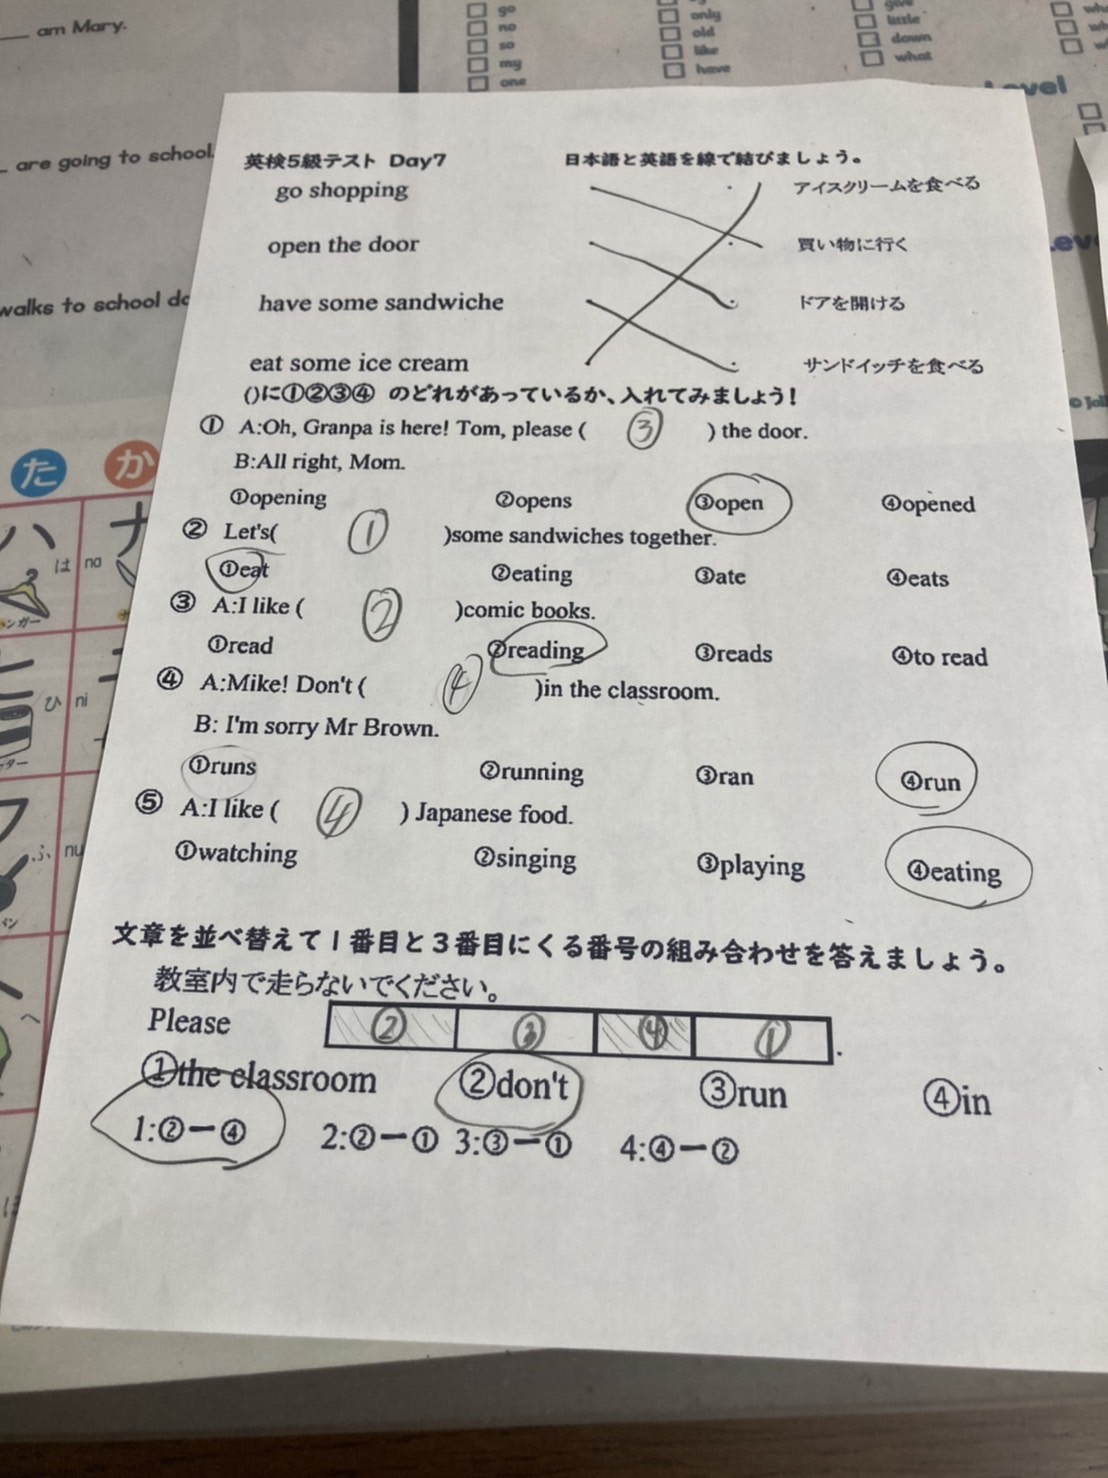 am Mary.
are going to school.
walks to school
go
no
so
my
one
only
old
like
have
give
little
down
what
英検5級テスト Day7
日本語と英語を線で結びましょう。
go shopping
アイスクリームを食べる
open the door
買い物に行く
have some sandwiche
ドアを開ける
eat some ice cream
サンドイッチを食べる
()に①②③④ のどれがあっているか、入れてみましょう!
① A:Oh, Granpa is here! Tom, please ( ③ ) the door.
B:All right, Mom.
①opening ②opens ③open ④opened
② Let's( ① )some sandwiches together.
①eat ②eating ③ate ④eats
③ A:I like ( ② )comic books.
①read ②reading ③reads ④to read
④ A:Mike! Don't ( ④ )in the classroom.
B: I'm sorry Mr Brown.
①runs ②running ③ran ④run
⑤ A:I like ( ④ ) Japanese food.
①watching ②singing ③playing ④eating
文章を並べ替えて1番目と3番目にくる番号の組み合わせを答えましょう。
教室内で走らないでください。
Please ② ③ ④ ① .
①the classroom ②don't ③run ④in
1:②ー④ 2:②ー① 3:③ー① 4:④ー②
た
か
ハ
は
na
ナ
ンガー
ヒ
ひ
ni
フ
ふ
nu
へ